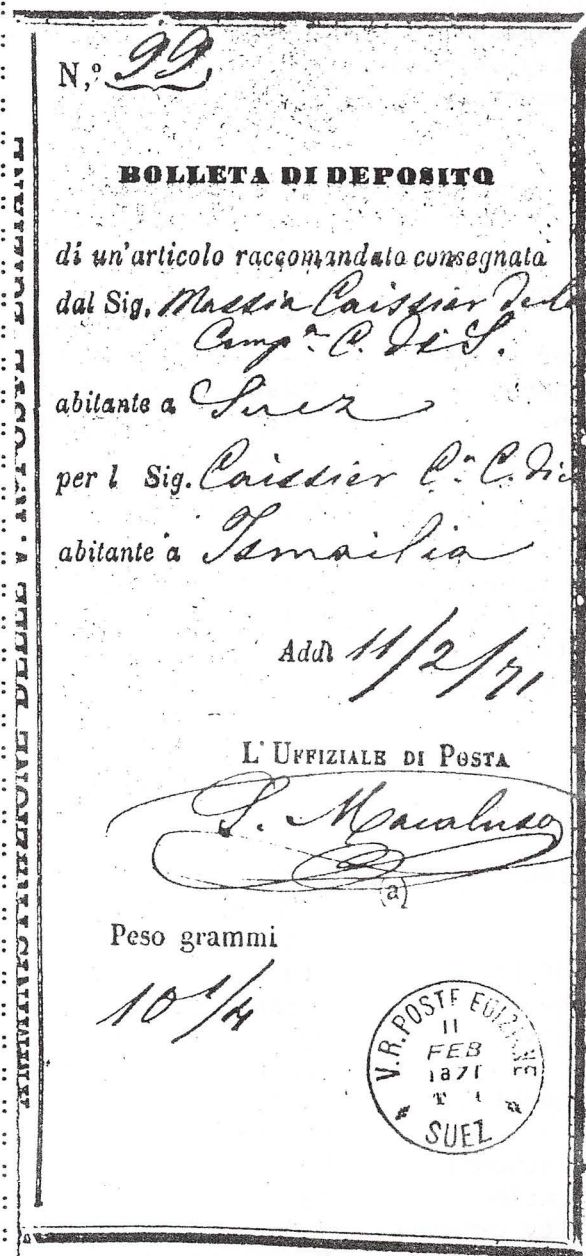 N,º 99
BOLLETA DI DEPOSITO
di un'articolo raccomandato consegnata
dal Sig. Massia Caissier de la
Comp.ª C. di S.
abitante a Suez
per l Sig. Caissier C.ª C. di
abitante a Ismailia
Addì 11/2/71
L'UFFIZIALE DI POSTA
S. Macaluso
(a)
Peso grammi
10 1/4
V.R. POSTE EGIZIANE
11
FEB
1871
SUEZ